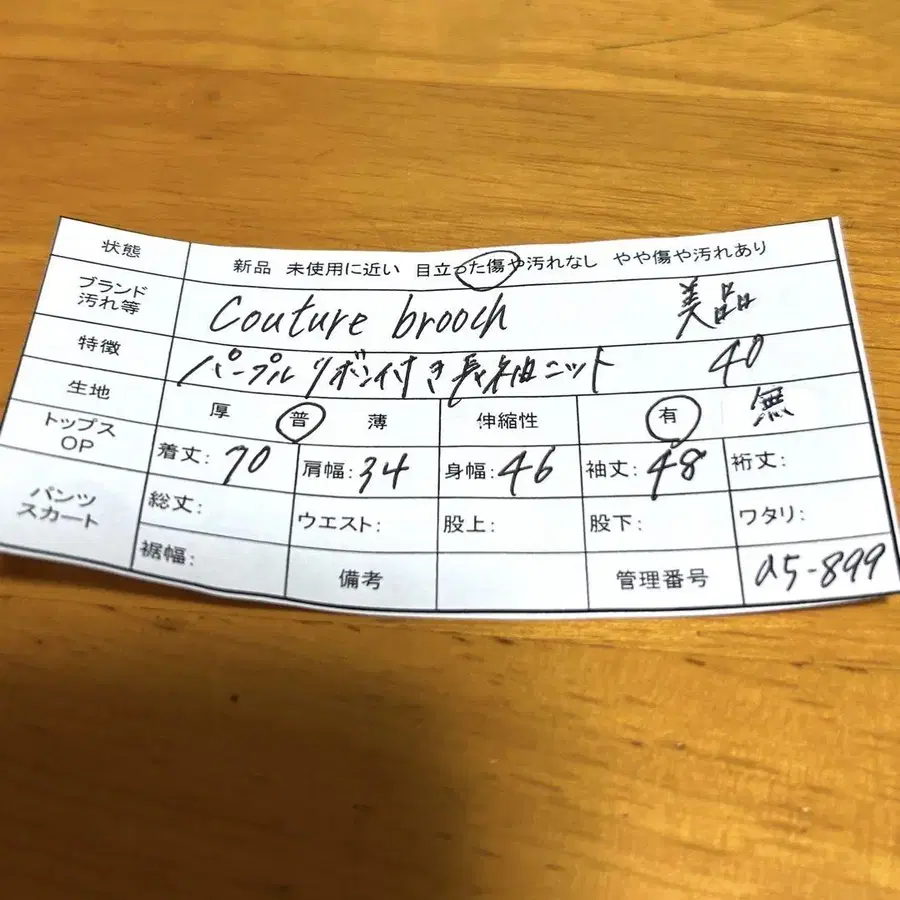 状態 新品 未使用に近い 目立った傷や汚れなし やや傷や汚れあり
ブランド
汚れ等 Couture brooch 美品
特徴 パープルリボン付き長袖ニット 40
生地 厚 普 薄 伸縮性 有 無
トップス
OP 着丈: 70 肩幅: 34 身幅: 46 袖丈: 48 裄丈:
パンツ
スカート 総丈: ウエスト: 股上: 股下: ワタリ:
裾幅: 備考 管理番号 a5-899